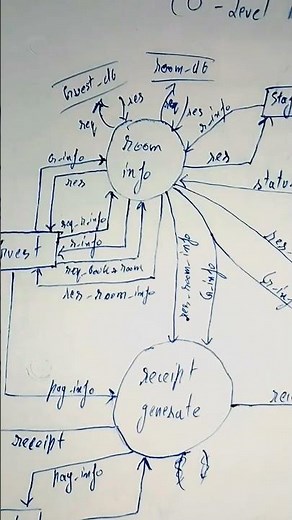 (0-level
Guest_db
room_db
req
res
req
res
r_info
Sta
room
info
G_info
res
res
status
req_r_info
r_info
req_book&room
res_room_info
Guest
res_room_info
G_info
res_
G_info
pay_info
receipt
generate
rece
receipt
pay_info